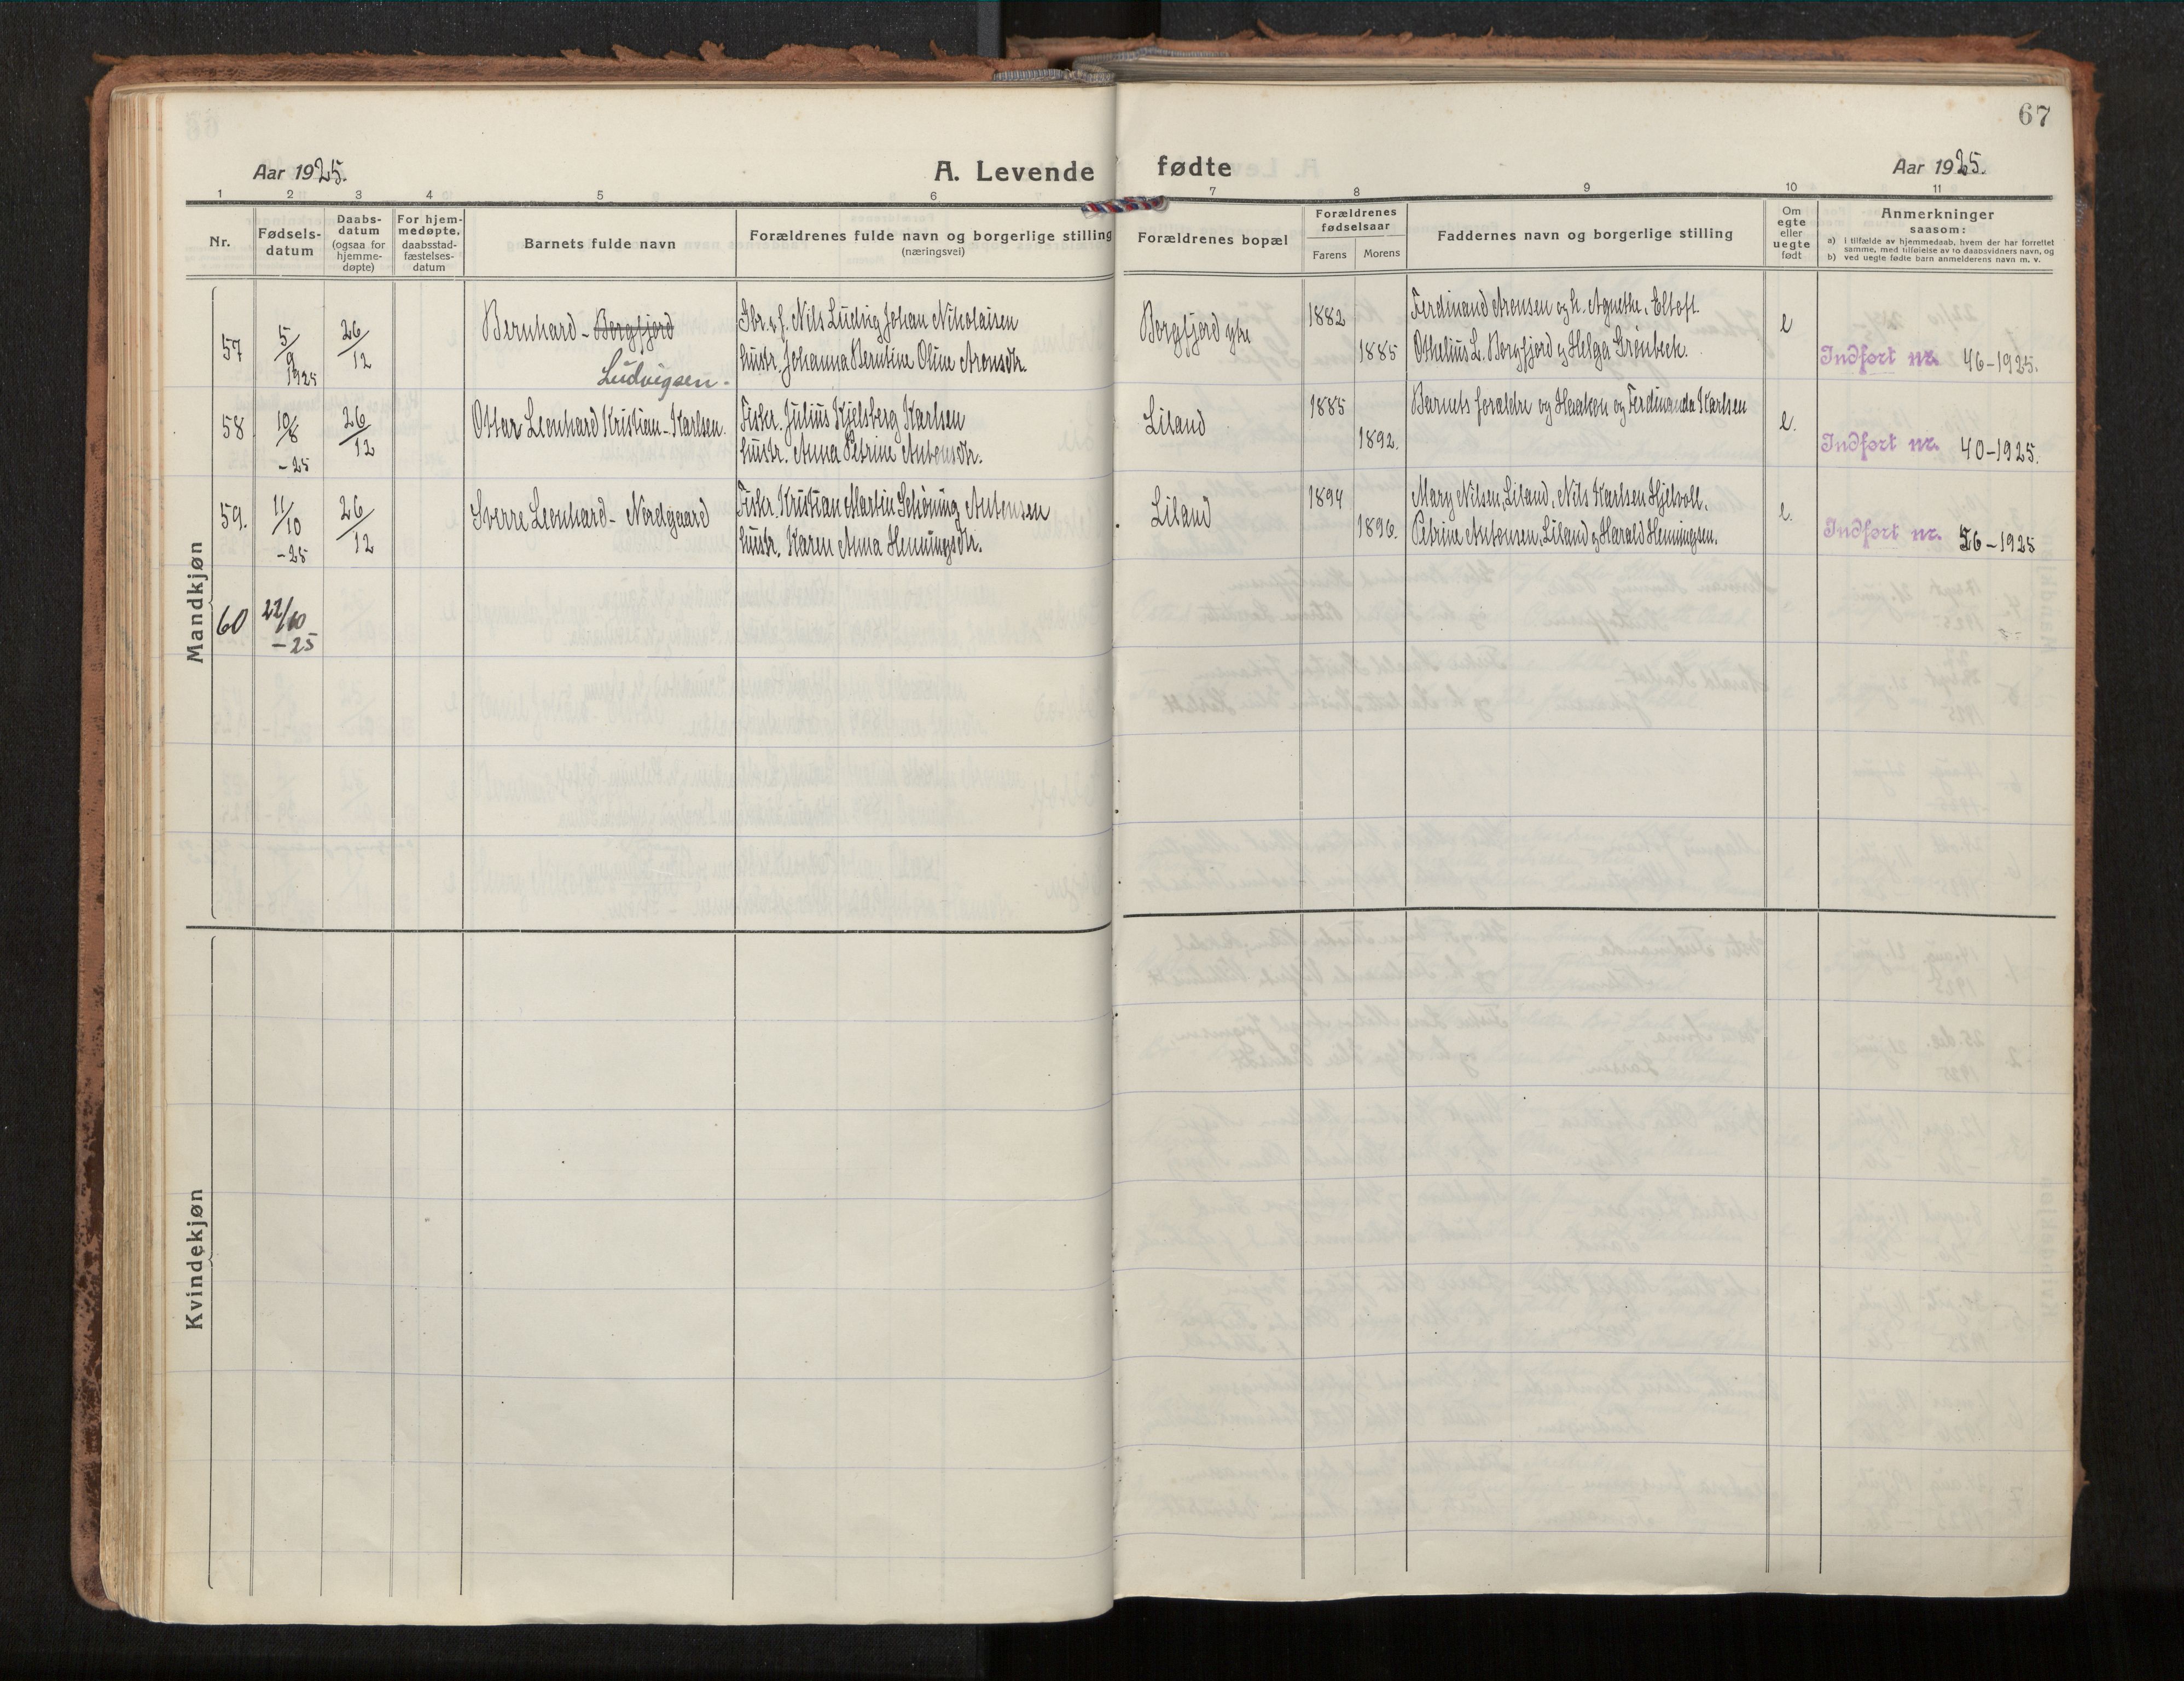 67
Aar 1925.
A. Levende fødte
Aar 1925.
1 2 3 4 5 6 7 8 9 10 11
Nr.
Fødsels-
datum
Daabs-
datum
(ogsaa for
hjemme-
døpte)
For hjem-
medøpte,
daabsstad-
fæstelses-
datum
Barnets fulde navn
Forældrenes fulde navn og borgerlige stilling
(næringsvei)
Forældrenes bopæl
Forældrenes
fødselsaar
Farens Morens
Faddernes navn og borgerlige stilling
Om
egte
eller
uegte
født
Anmerkninger
saasom:
a) i tilfælde av hjemmedaab, hvem der har forrettet
samme, med tilføielse av to daabsvidners navn, og
b) ved uegte fødte barn anmelderens navn m. v.
Mandkjøn
57 5/9 1925 26/12 Bernhard - Borgfjord
Ludvigsen.
Gbr. & f. Nils Ludvig Johan Nikolaisen
hustr. Johanna Berntine Oline Aronsdtr.
Borgfjord ytre 1882
1885
Ferdinand Aronsen og h. Agnethe, Eltoft.
Othelius L. Borgfjord og Helga Grønbech.
e
Indført nr. 46-1925.
58 10/8 -25 26/12 Ottar Leonhard Kristian - Karlsen.
Fisker. Julius Kjelsberg Karlsen
hustr. Anna Petrine Antonsdtr.
Liland 1885
1892.
Barnets forældre og Haakon og Ferdinanda Karlsen
e.
Indført nr. 40-1925.
59. 11/10 -25 26/12 Sverre Leonhard - Nordgaard
Fisker. Kristian Martin Schöning Antonsen
hustr. Karen Anna Henningsdtr.
Liland 1894
1896.
Mary Nilsen, Liland, Nils Karlsen Hjelvoll.
Petrine Antonsen, Liland og Harald Henningsen.
e.
Indført nr. 56-1925
60 22/10 -25
Kvindekjøn